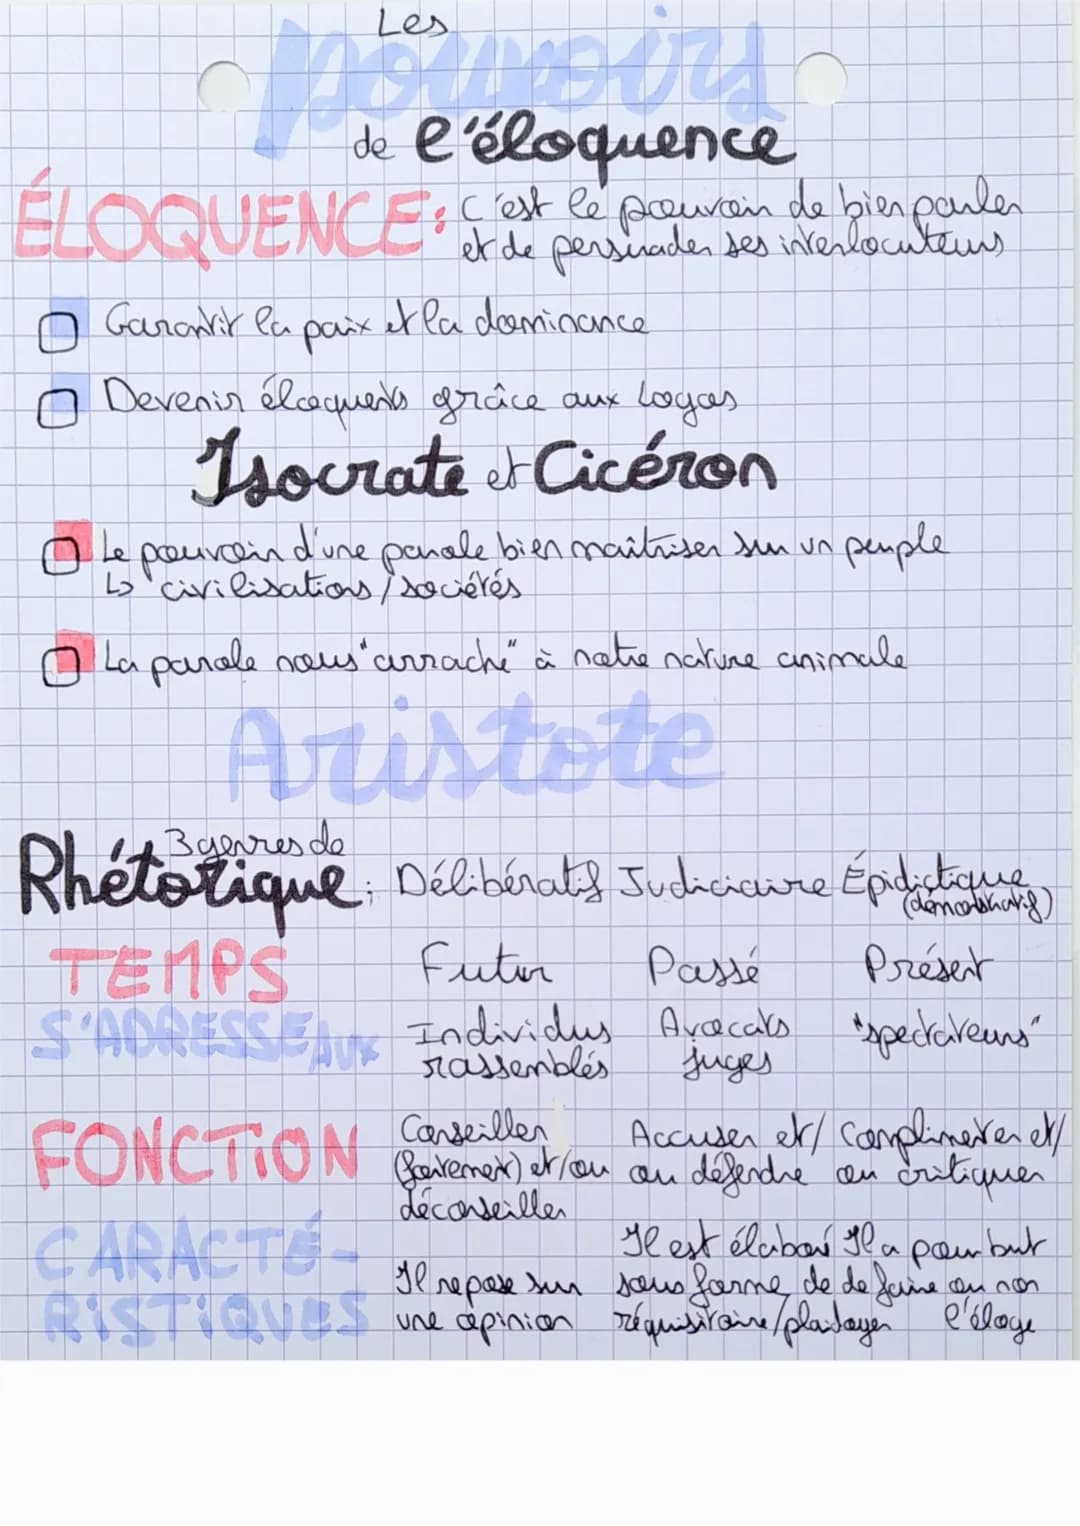 Les
pouvoirs
de l'éloquence
ÉLOQUENCE: c'est le pouvoir de bien parler
et de persuader ses interlocuteurs
Garantir la paix et la dominance
Devenir éloquents grâce aux Logos
Isocrate et Cicéron
Le pouvoir d'une parole bien maîtriser sur un peuple
↳ civilisations/sociétés
La parole nous "arrache" à notre nature animale
Aristote
3 genres de
Rhétorique: Délibératif Judiciaire Épidictique
(démonstratif)
TEMPS Futur Passé Présent
S'ADRESSE AUX Individus Avocats "spectateurs"
rassemblés juges
FONCTION Conseiller Accuser et/ Complimenter et/
(fortement) et/ou ou défendre ou critiquer
déconseiller
CARACTÉ- Il est élaboré Il a pour but
Il repose sur sous forme de de faire ou non
RISTIQUES une opinion réquisitoire/plaidoyer l'éloge